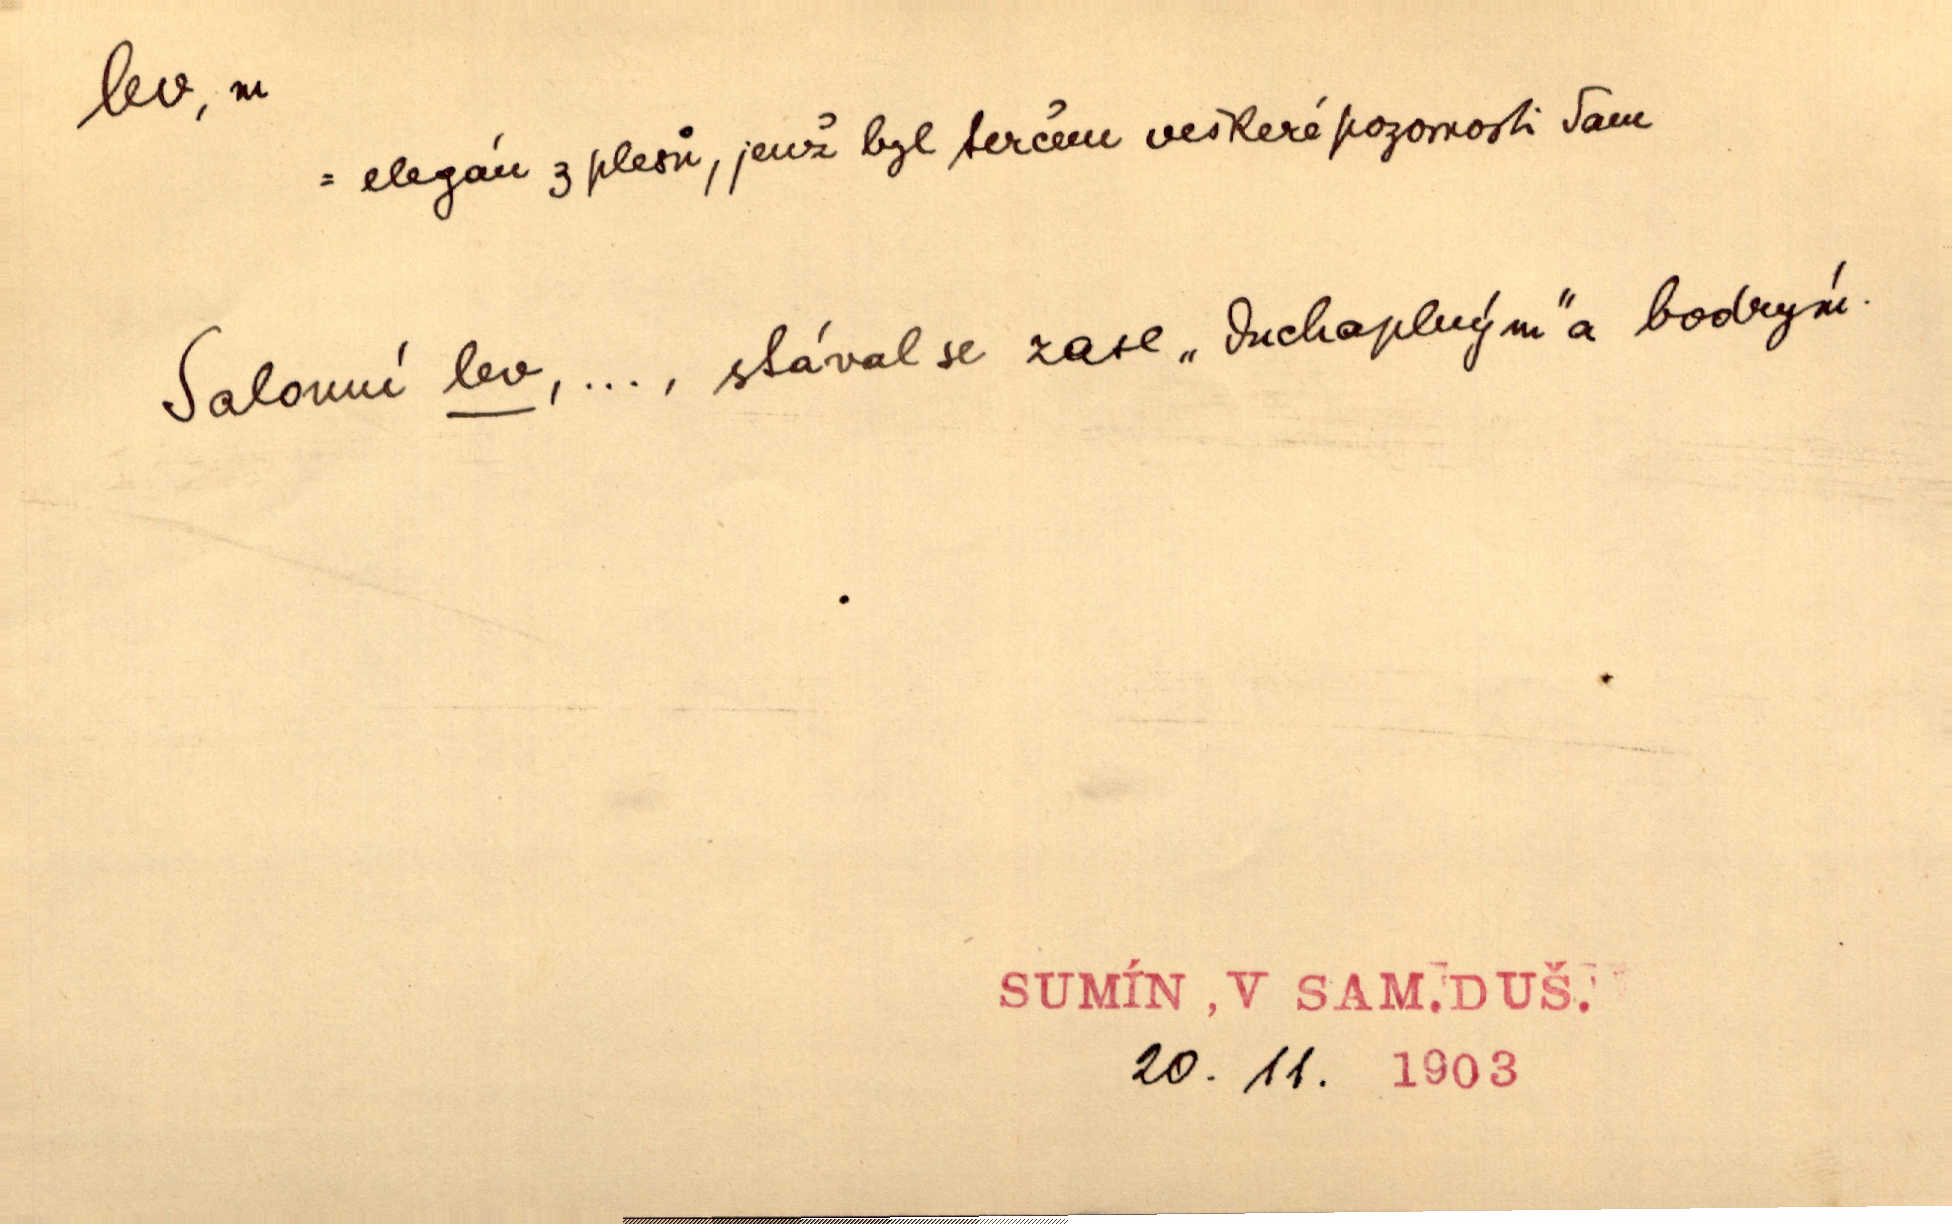 lev, m
= elegán z plesů, jenž byl terčem veškeré pozornosti dam
Salonní lev, ..., stával se zase „duchaplným“ a bodrým.
SUMÍN, V SAM. DUŠ.
20. 11. 1903